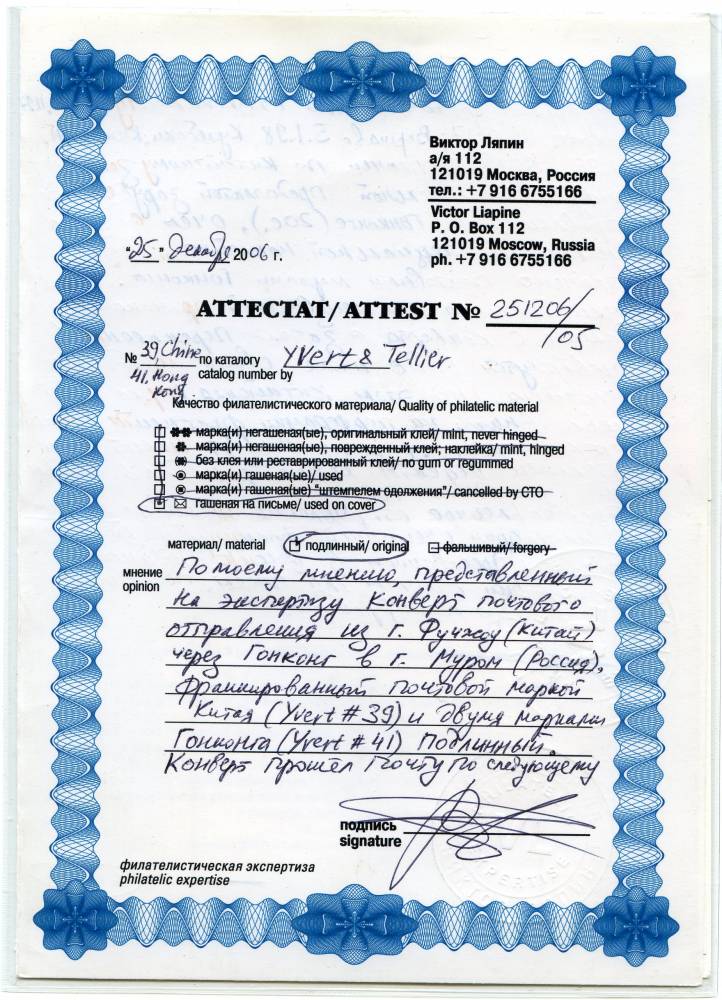 Виктор Ляпин
а/я 112
121019 Москва, Россия
тел.: +7 916 6755166
Victor Liapine
P. O. Box 112
121019 Moscow, Russia
ph. +7 916 6755166
"25" декабря 2006 г.
АТТЕСТАТ/ ATTEST № 251206/
/05
№ 39, Chine по каталогу Yvert & Tellier
41, Hong Kong catalog number by
Качество филателистического материала/ Quality of philatelic material
марка(и) негашеная(ые), оригинальный клей/ mint, never hinged
марка(и) негашеная(ые), поврежденный клей; наклейка/ mint, hinged
без клея или реставрированный клей/ no gum or regummed
марка(и) гашеная(ые)/ used
марка(и) гашеная(ые) "штемпелем одолжения"/ cancelled by CTO
гашеная на письме/ used on cover
материал/ material подлинный/ original фальшивый/ forgery
мнение
opinion
По моему мнению, представленный
на экспертизу конверт почтового
отправления из г. Фучжоу (Китай)
через Гонконг в г. Муром (Россия),
франкированный почтовой маркой
Китая (Yvert # 39) и двумя марками
Гонконга (Yvert # 41) подлинный.
Конверт прошёл почту по следующему
подпись
signature
EXPERTISE
филателистическая экспертиза
philatelic expertise